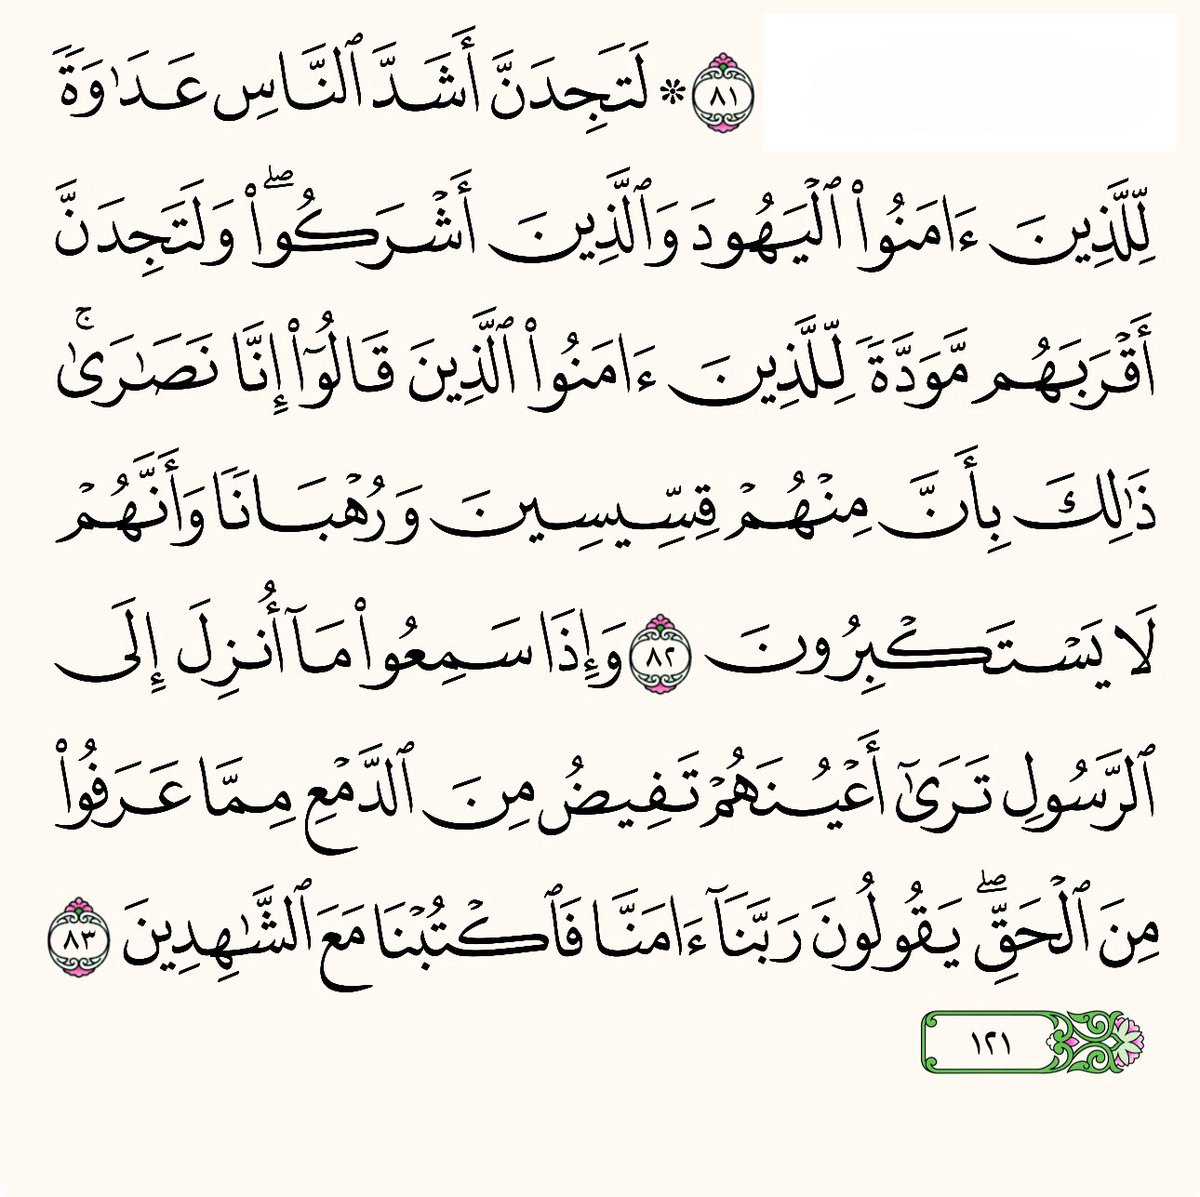 ٨١ ۞ لَتَجِدَنَّ أَشَدَّ ٱلنَّاسِ عَدَٰوَةً
لِّلَّذِينَ ءَامَنُوا۟ ٱلْيَهُودَ وَٱلَّذِينَ أَشْرَكُوا۟ ۖ وَلَتَجِدَنَّ
أَقْرَبَهُم مَّوَدَّةً لِّلَّذِينَ ءَامَنُوا۟ ٱلَّذِينَ قَالُوٓا۟ إِنَّا نَصَٰرَىٰ ۚ
ذَٰلِكَ بِأَنَّ مِنْهُمْ قِسِّيسِينَ وَرُهْبَانًا وَأَنَّهُمْ
لَا يَسْتَكْبِرُونَ ٨٢ وَإِذَا سَمِعُوا۟ مَآ أُنزِلَ إِلَى
ٱلرَّسُولِ تَرَىٰٓ أَعْيُنَهُمْ تَفِيضُ مِنَ ٱلدَّمْعِ مِمَّا عَرَفُوا۟
مِنَ ٱلْحَقِّ ۖ يَقُولُونَ رَبَّنَآ ءَامَنَّا فَٱكْتُبْنَا مَعَ ٱلشَّٰهِدِينَ ٨٣
١٢١